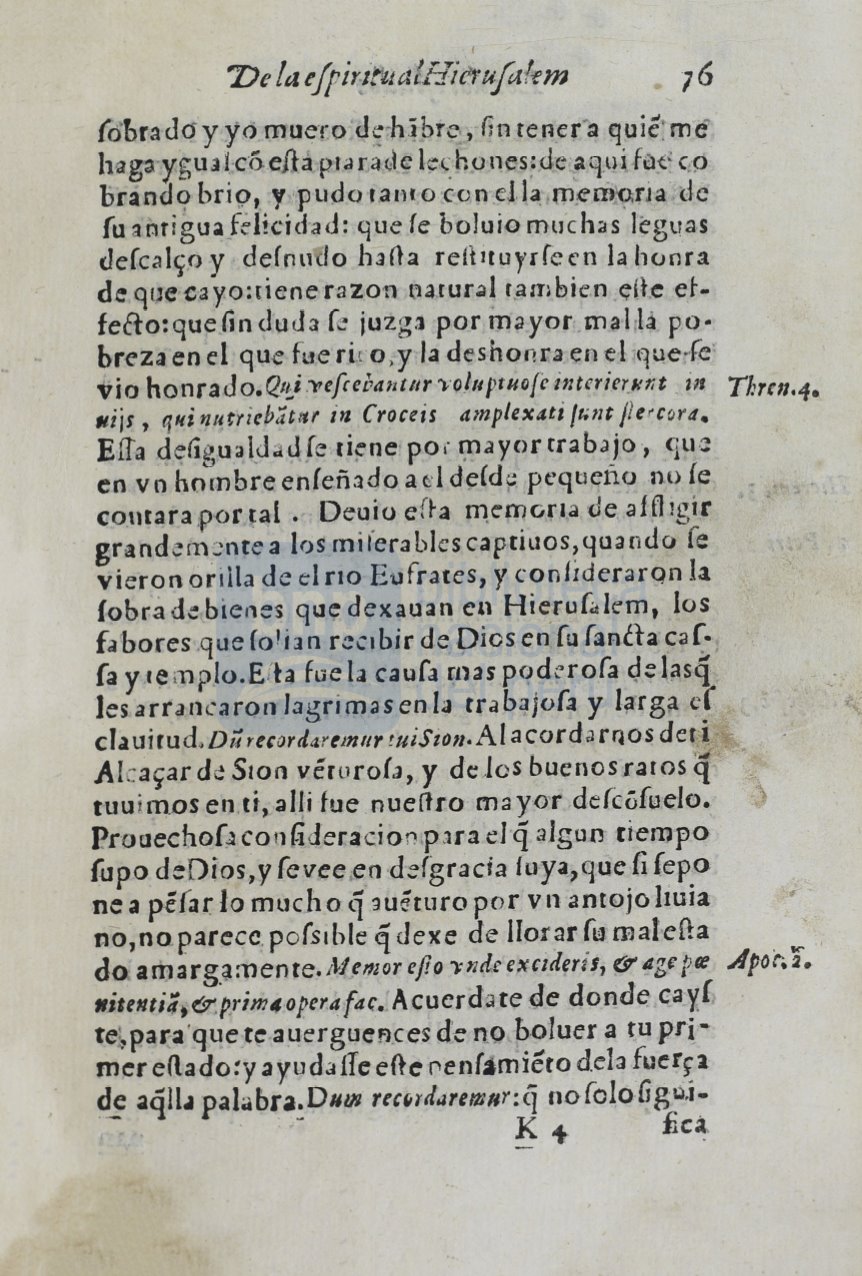 De la eſpiritual Hieruſalem 76
ſobrado y yo muero de hãbre, ſin tener a quiẽ me
haga ygual cõ eſta piara de lechones: de aqui fue co
brando brio, y pudo tanto con el la memoria de
ſu antigua felicidad: que ſe boluio muchas leguas
deſcalço y deſnudo haſta reſtituyrſe en la honra
de que cayo: tiene razon natural tambien eſte ef-
fecto: que ſin duda ſe juzga por mayor mal la po-
breza en el que fue rico, y la deshonra en el que ſe
vio honrado. Qui veſcebantur voluptuoſe interierunt in Thren. 4.
uijs, qui nutriebãtur in Croceis amplexati ſunt ſtercora.
Eſſa deſigualdad ſe tiene por mayor trabajo, que
en vn hombre enſeñado a el deſde pequeño no ſe
contara por tal. Deuio eſta memoria de affligir
grandemente a los miſerables captiuos, quando ſe
vieron orilla de el rio Eufrates, y conſideraron la
ſobra de bienes que dexauan en Hieruſalem, los
fabores que ſolian recibir de Dios en ſu ſancta caſ-
ſa y templo. Eſta fue la cauſa mas poderoſa de las q̃
les arrancaron lagrimas en la trabajoſa y larga eſ
clauitud. Dũ recordaremur tui Sion. Al acordarnos de ti
Alcaçar de Sion vẽturoſa, y de los buenos ratos q̃
tuuimos en ti, alli fue nueſtro mayor deſcõſuelo.
Prouechoſa conſideracion para el q̃ algun tiempo
ſupo de Dios, y ſe vee en deſgracia ſuya, que ſi ſe po
ne a pẽſar lo mucho q̃ auẽturo por vn antojo liuia
no, no parece poſsible q̃ dexe de llorar ſu mal eſta
do amargamente. Memor eſto vnde excideris, & age pœ Apoc. 2.
nitentiã, & prima opera fac. Acuerdate de donde cayſ
te, para que te auerguences de no boluer a tu pri-
mer eſtado: y ayudaſſe eſte penſamiẽto de la fuerça
de aq̃lla palabra. Dum recordaremur: q̃ no ſolo ſigui-
K 4 fica